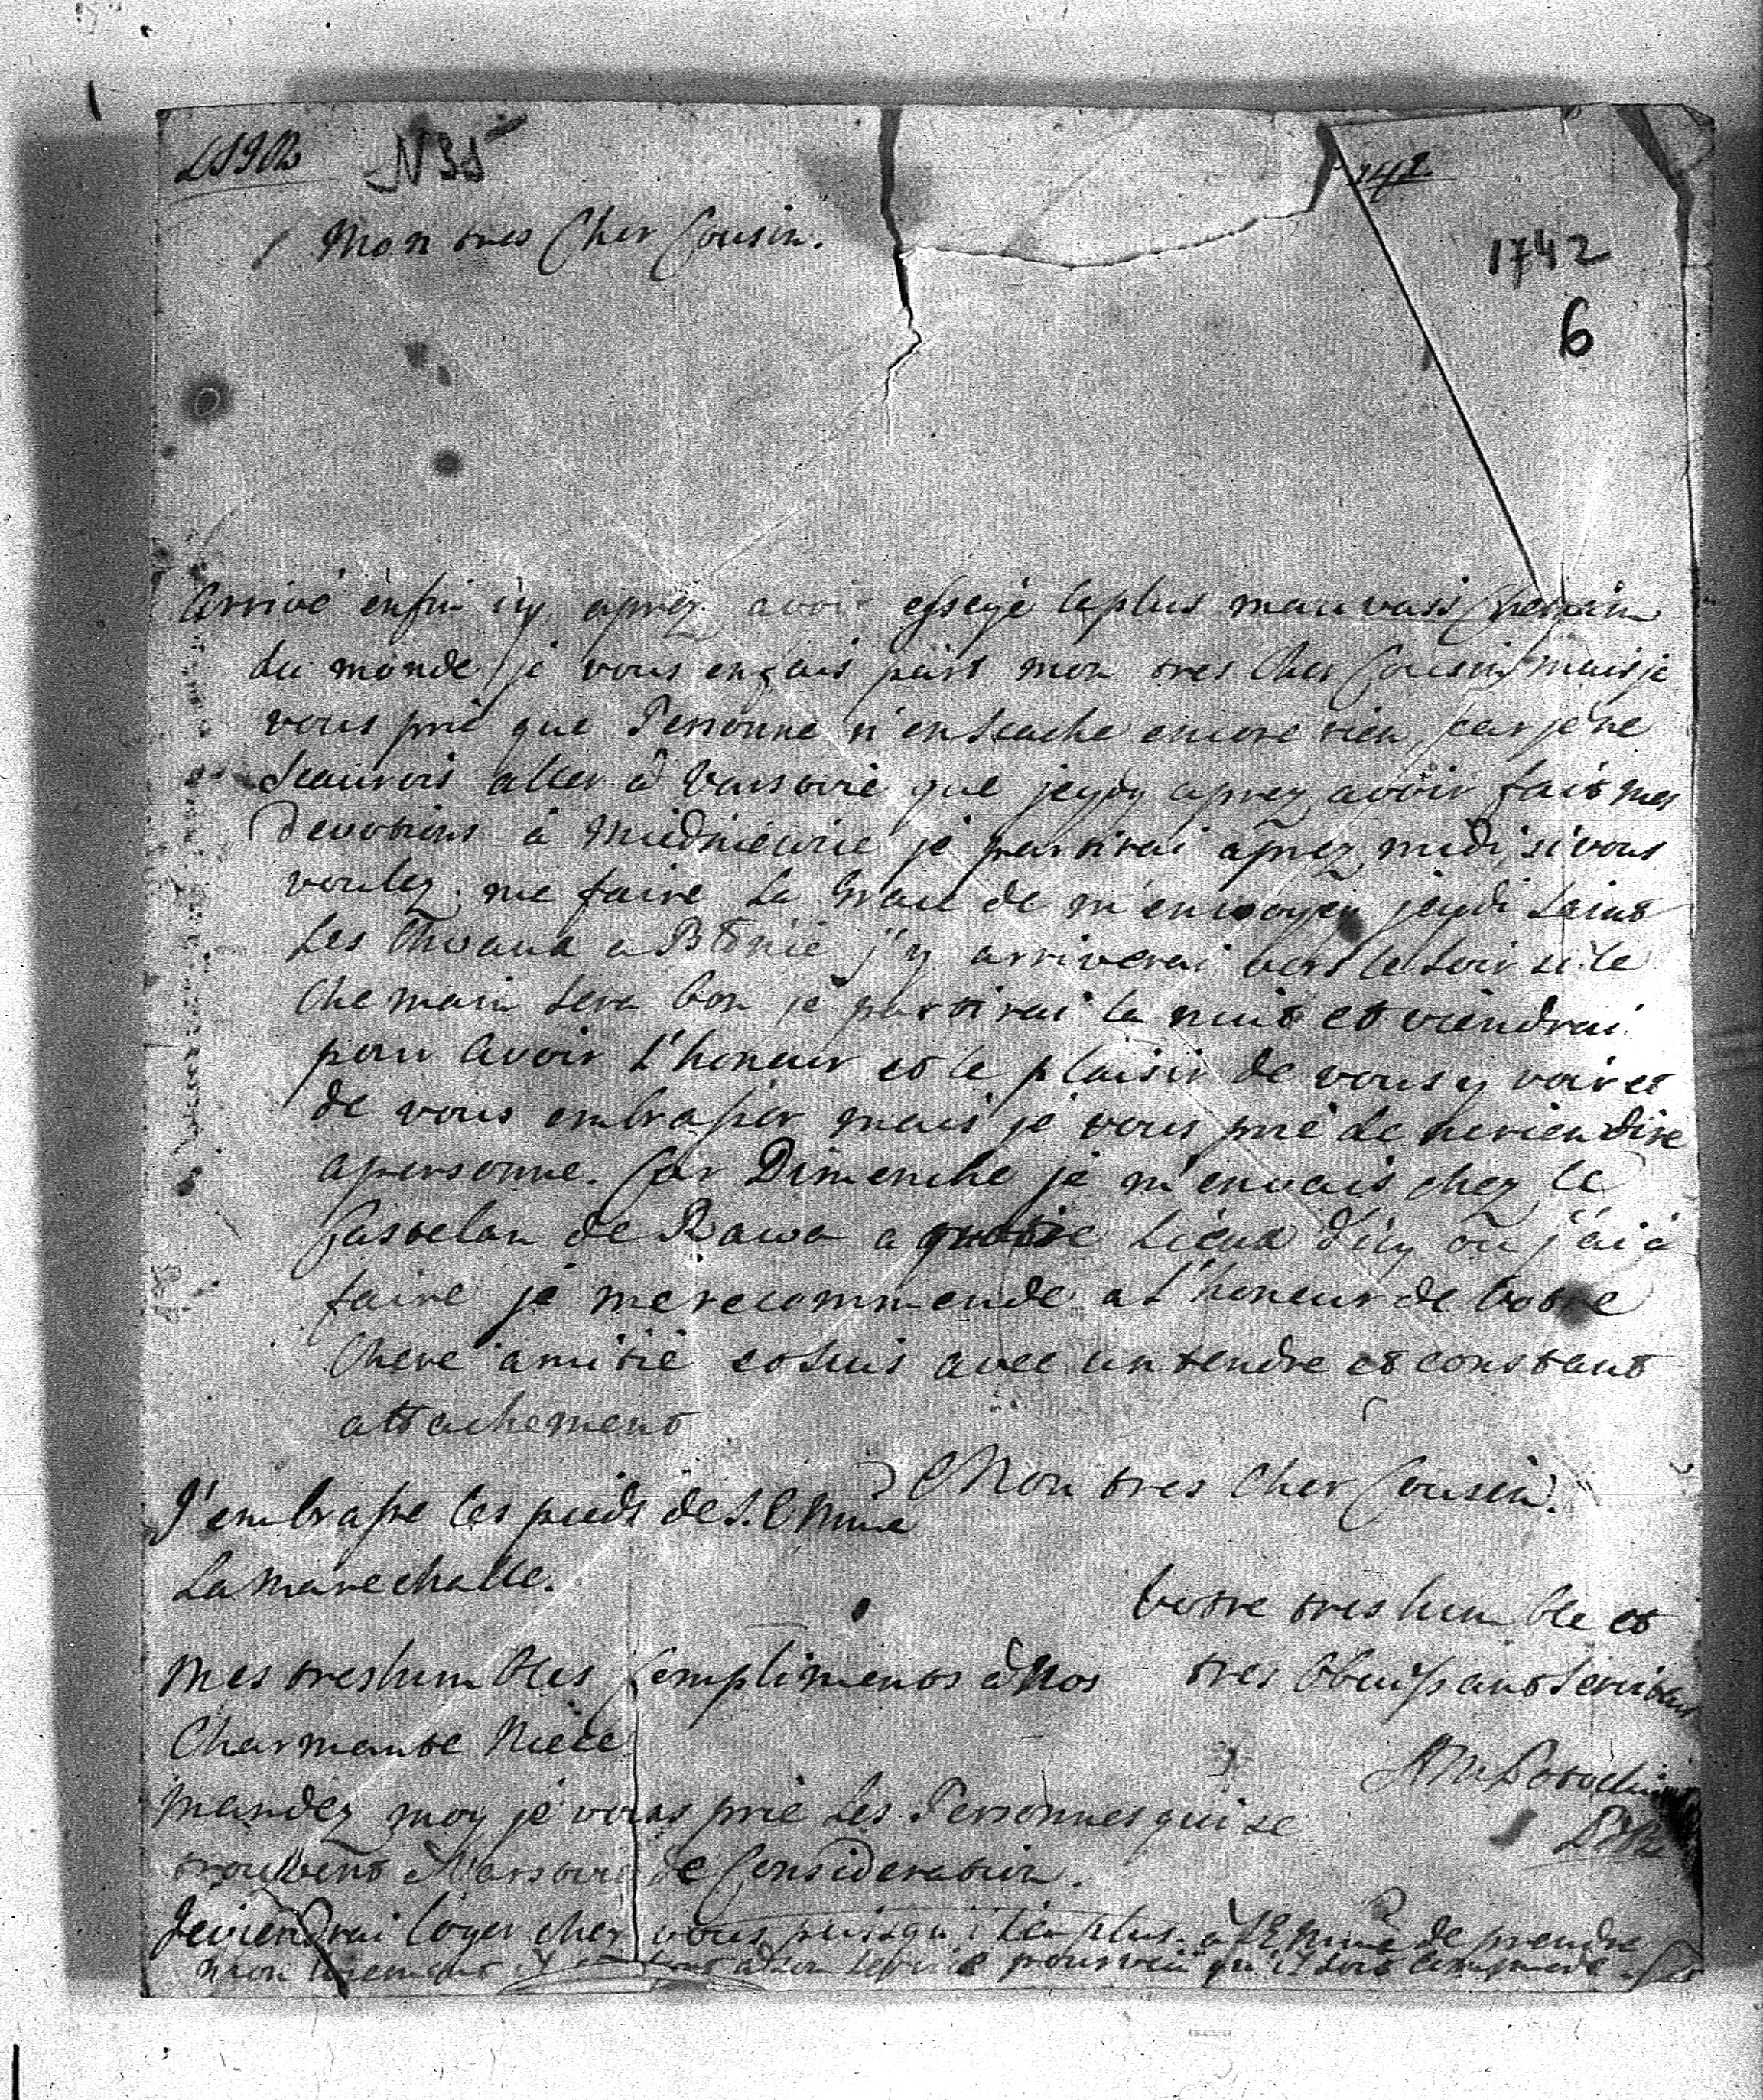 N35
142
1742
6
Mon tres Cher Cousin.
Arrivé enfin icy aprez avoir essejé le plus mauvais Chemin
du monde je vous en fais part mon tres Cher Cousin mais je
vous prie que Personne n'en scache encore rien, car je ne
scaurois aller à Varsovie que jeydy aprez avoir fait mes
devotions à Miedniewice je partirai aprez midi, si vous
voulez me faire la Grace de m'envoyer jeydi saint
les Chvaux a Błonie j'y arriverai vers le soir si le
Chemain sera bon je partirai la nuit et viendrai
pour avoir l'honeur et le plaisir de vous y voir et
de vous embrasser mais je vous prie de ne rien dire
a personne. Car Dimenche je m'en vais chez le
Castelan de Rawa a quatre Lieux d'icy où j'ai à
faire je me recommende a l'honeur de votre
Chere amitié et suis avec un tendre et constant
attachement
Mon tres Cher Cousin.
J'embrasse les pieds de S. E Mme
La Marechalle.
votre tres humble et
tres Obeissant serviteur
Mes tres humbles Compliments à Nos
Charmante Niece
Mandez moy je vous prie les Personnes qui se
trouvent à Varsovie de Consideration.
Je viendrai loger chez vous puisqu'il a plus à S E Mme de prendre
mon à son service pourveu qu'il soit